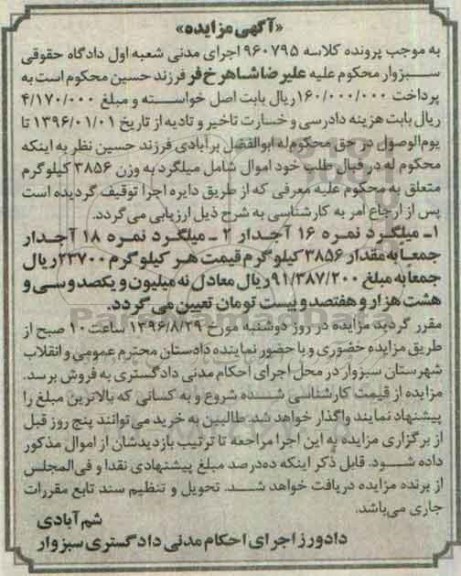 «آگهی مزایده»
به موجب پرونده کلاسه ۹۶۰۷۹۵ اجرای مدنی شعبه اول دادگاه حقوقی
سبزوار محکوم علیه علیرضا شاهرخ فر فرزند حسین محکوم است به
پرداخت ۱۶۰/۰۰۰/۰۰۰ ریال بابت اصل خواسته و مبلغ ۴/۱۷۰/۰۰۰
ریال بابت هزینه دادرسی و خسارت تاخیر و تادیه از تاریخ ۱۳۹۶/۰۱/۰۱ تا
یوم الوصول در حق محکوم له ابوالفضل برآبادی فرزند حسین نظر به اینکه
محکوم له در قبال طلب خود اموال شامل میلگرد به وزن ۳۸۵۶ کیلوگرم
متعلق به محکوم علیه معرفی که از طریق دایره اجرا توقیف گردیده است
پس از ارجاع امر به کارشناسی به شرح ذیل ارزیابی می گردد.
۱ـ میلگرد نمره ۱۶ آجدار ۲ ـ میلگرد نمره ۱۸ آجدار
جمعا به مقدار ۳۸۵۶ کیلوگرم قیمت هر کیلوگرم ۲۳۷۰۰ ریال
جمعا به مبلغ ۹۱/۳۸۷/۲۰۰ ریال معادل نه میلیون و یکصد و سی و
هشت هزار و هفتصد و بیست تومان تعیین می گردد.
مقرر گردید مزایده در روز دوشنبه مورخ ۱۳۹۶/۸/۲۹ ساعت ۱۰ صبح از
طریق مزایده حضوری و با حضور نماینده دادستان محترم عمومی و انقلاب
شهرستان سبزوار در محل اجرای احکام مدنی دادگستری به فروش برسد.
مزایده از قیمت کارشناسی شده شروع و به کسانی که بالاترین مبلغ را
پیشنهاد نمایند واگذار خواهد شد. طالبین به خرید می توانند پنج روز قبل
از برگزاری مزایده به این اجرا مراجعه تا ترتیب بازدیدشان از اموال مذکور
داده شود. قابل ذکر اینکه ده درصد مبلغ پیشنهادی نقدا و فی المجلس
از برنده مزایده دریافت خواهد شد. تحویل و تنظیم سند تابع مقررات
جاری می باشد.
شم آبادی
دادورز اجرای احکام مدنی دادگستری سبزوار